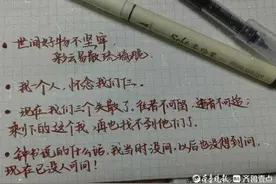 世间好物不坚牢,
彩云易散琉璃脆。
我一个人,怀念我们仨。
现在我们三个失散了,往者不可留,逝者不可追;
剩下的这个我,再也找不到他们了。
钟书说的什么话,我当时没问,以后也没得到问,
现在已没人可问!
齐鲁壹点